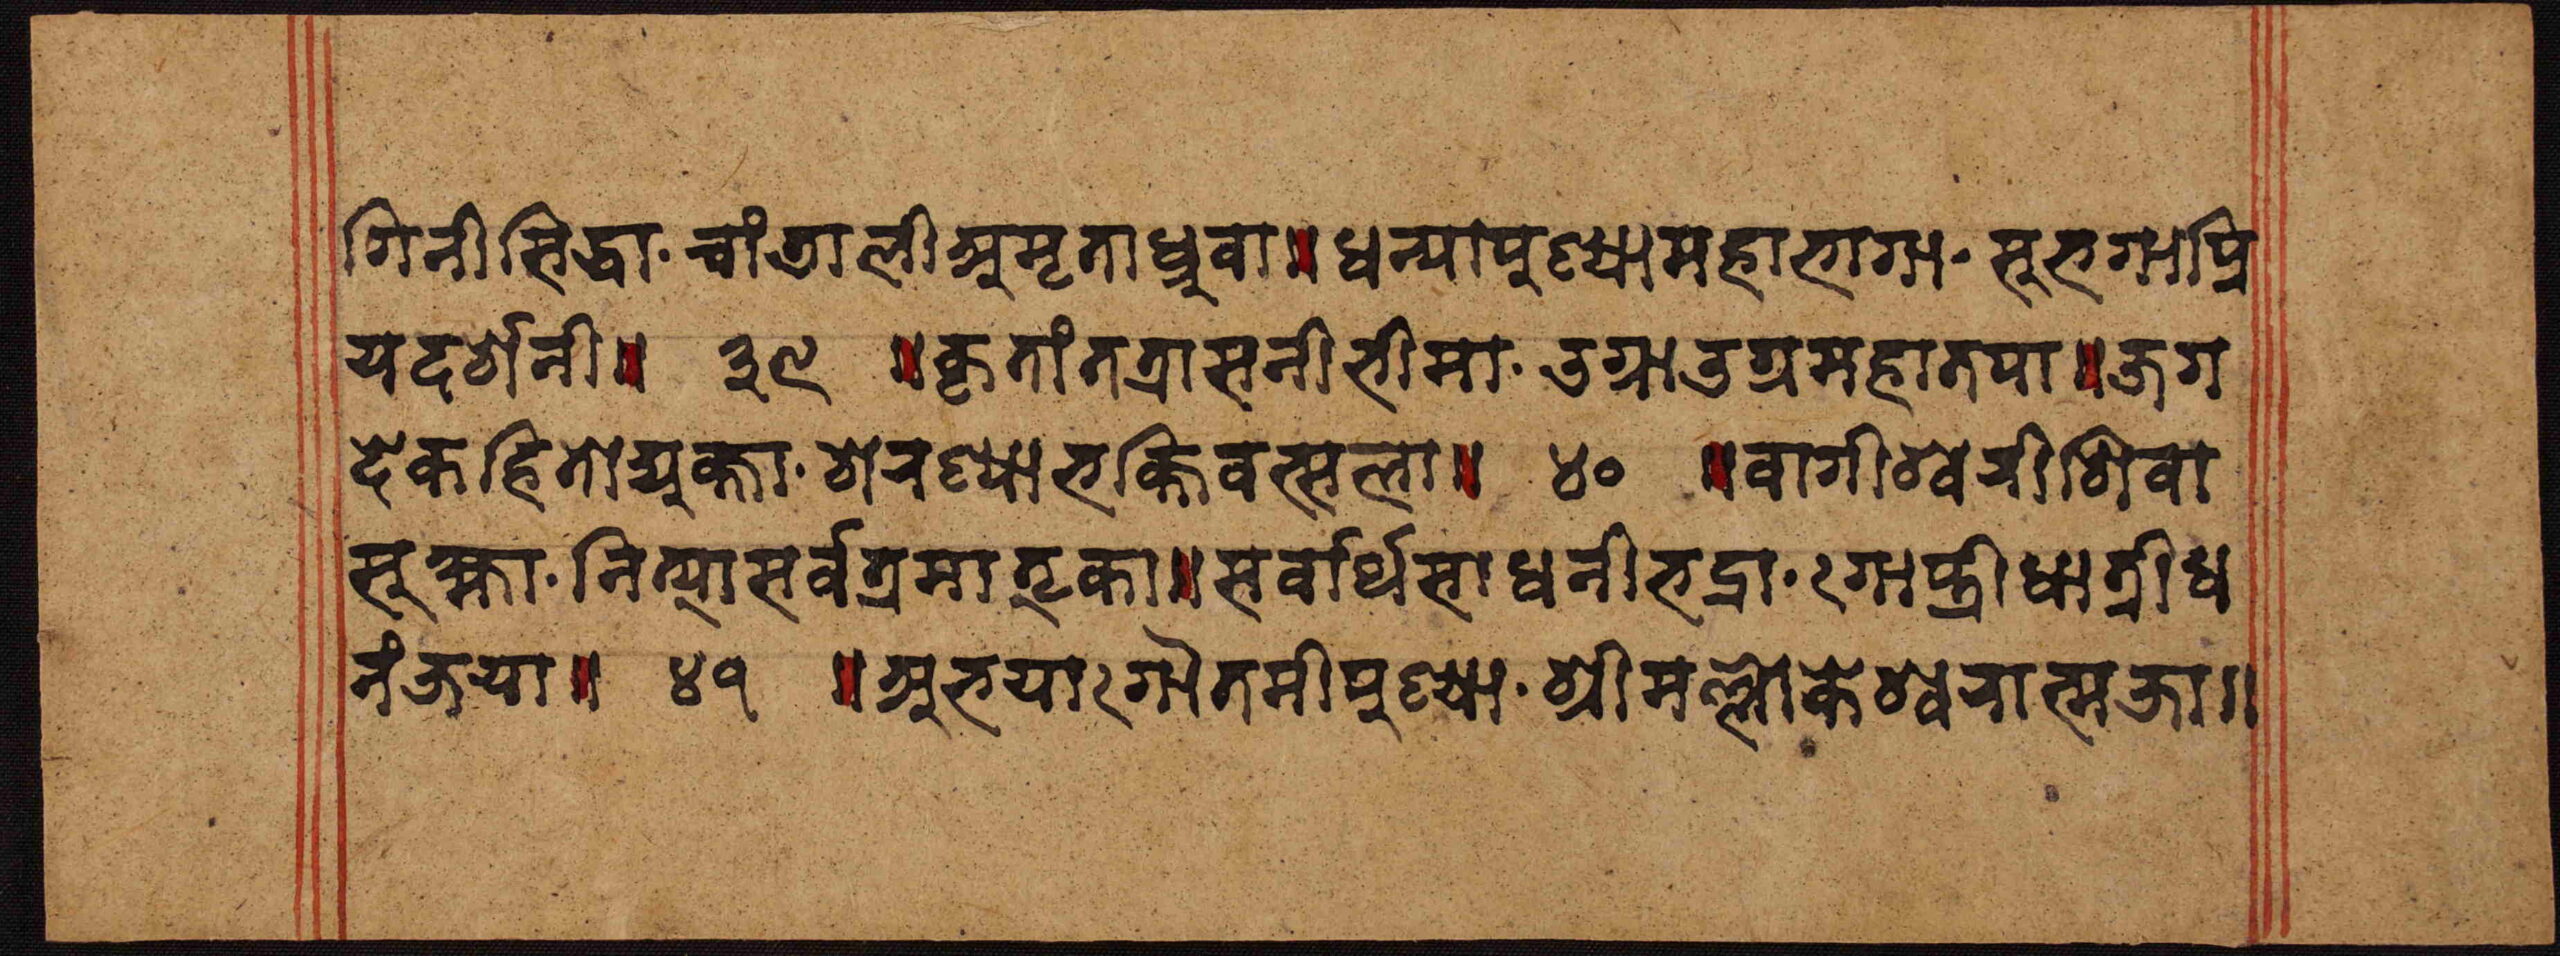 गिनीसिद्धा· चांडालीअमृताध्रुवा॥धन्यापुण्यामहाभागा· सुभगाप्रि
यदर्शनी॥ ३९ ॥कृतांतत्रासनीभीमा· उग्राउग्रमहातपा॥जग
देकहितोद्युक्ता· शरण्याभक्तिवत्सला॥ ४० ॥वागीश्वरीशिवा
सूक्ष्मा· नित्यासर्वत्रमातृका॥सर्वार्थसाधनीभद्रा· गोप्त्रीधात्रीध
नंजया॥ ४१ ॥अभयागौतमीपुण्या· श्रीमल्लोकेश्वरात्मजा॥